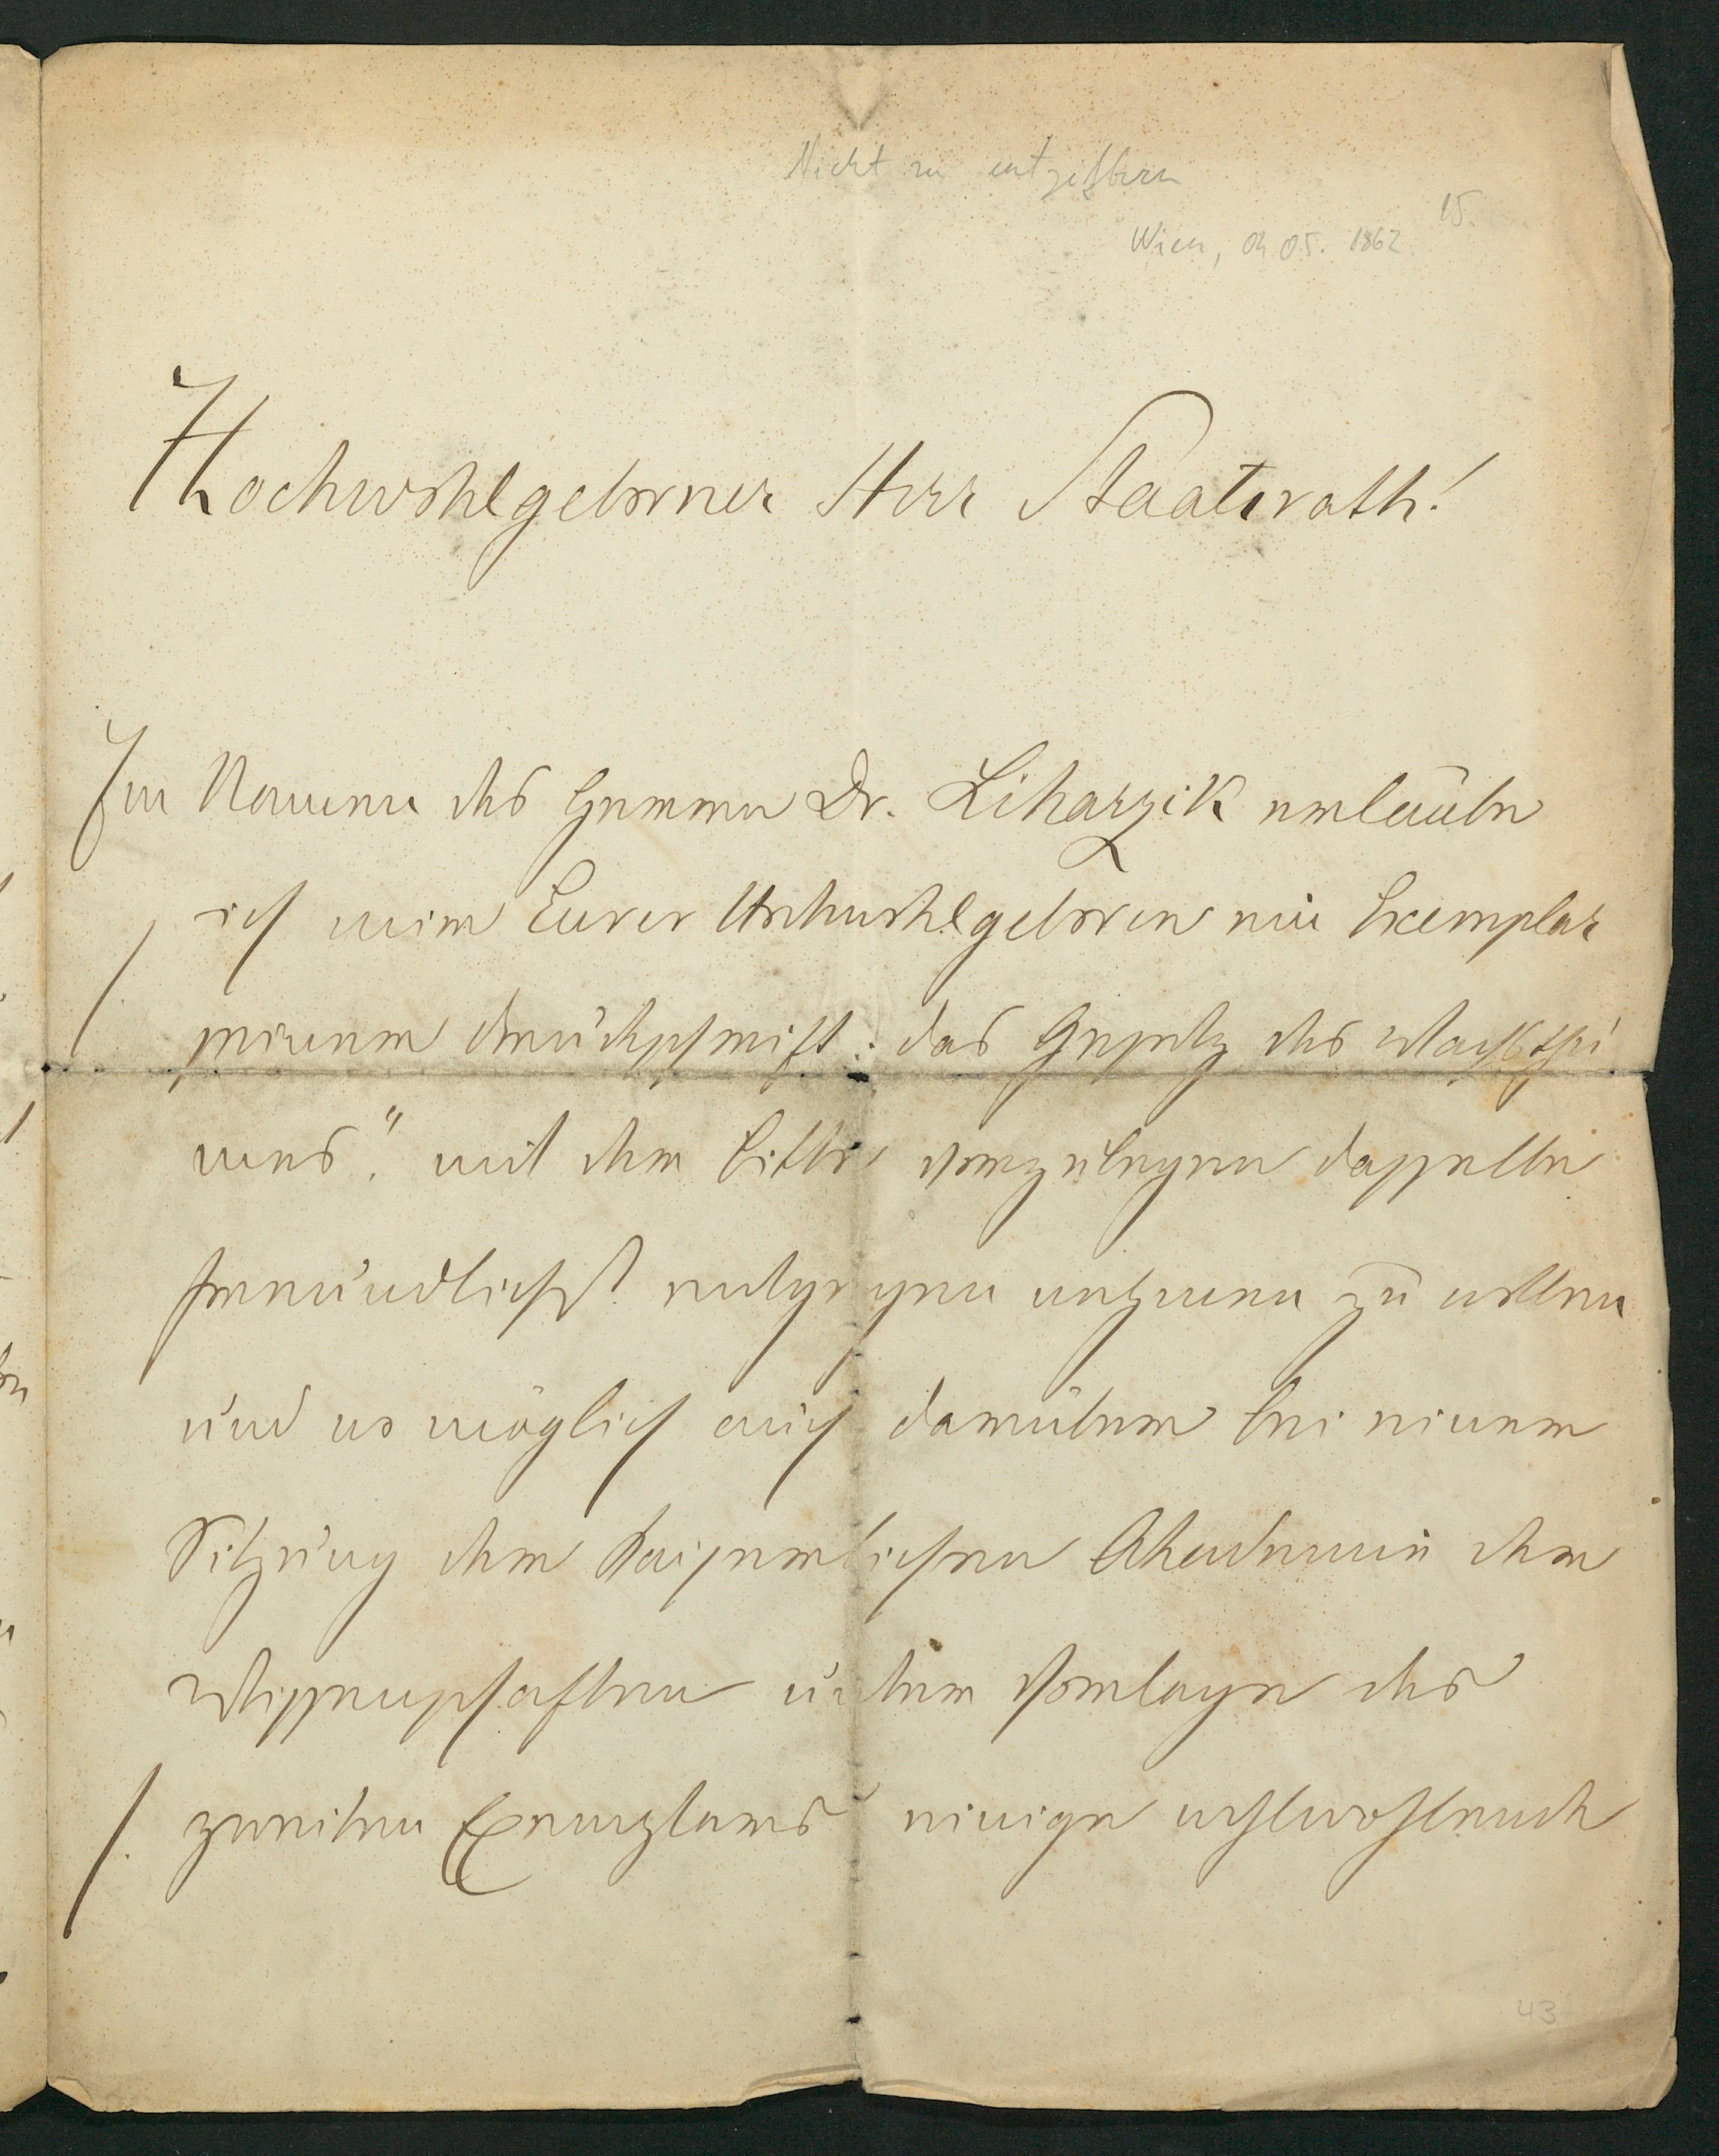 Nicht zu entziffern
15.
Wien, 04 05. 1862
Hochwohlgeborner Herr Staatsrath!
Im Namen des Herrn Dr. Liharzik erlaube
ich mir Eurer Hochwohlgeboren ein Exemplar
seiner Druckschrift: das Gesetz des Wachsthu
mes." mit der Bitte vorzulegen dasselbe
freundlichst entgegen nehmen zu wollen
und wo möglich auch darüber bei einer
Sitzung der Kaiserlichen Akademie der
Wissenschaften unter Vorlage des
/. zweiten Exemplares einige
43